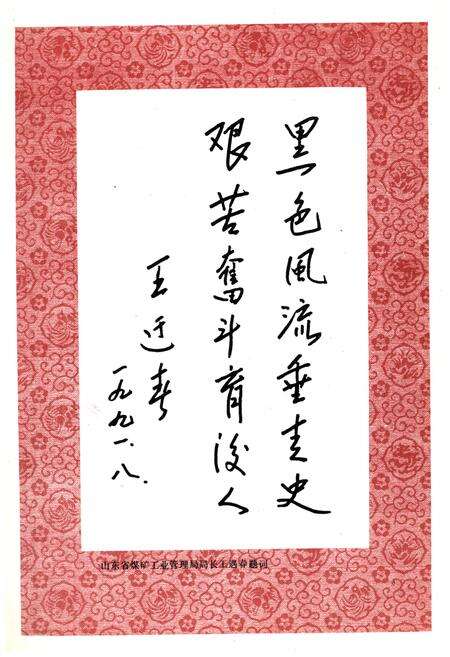 黑色風流垂青史
艰苦奮斗育後人
王迂春
一九九一.八.
山东省煤矿工业管理局局长王遇春题词